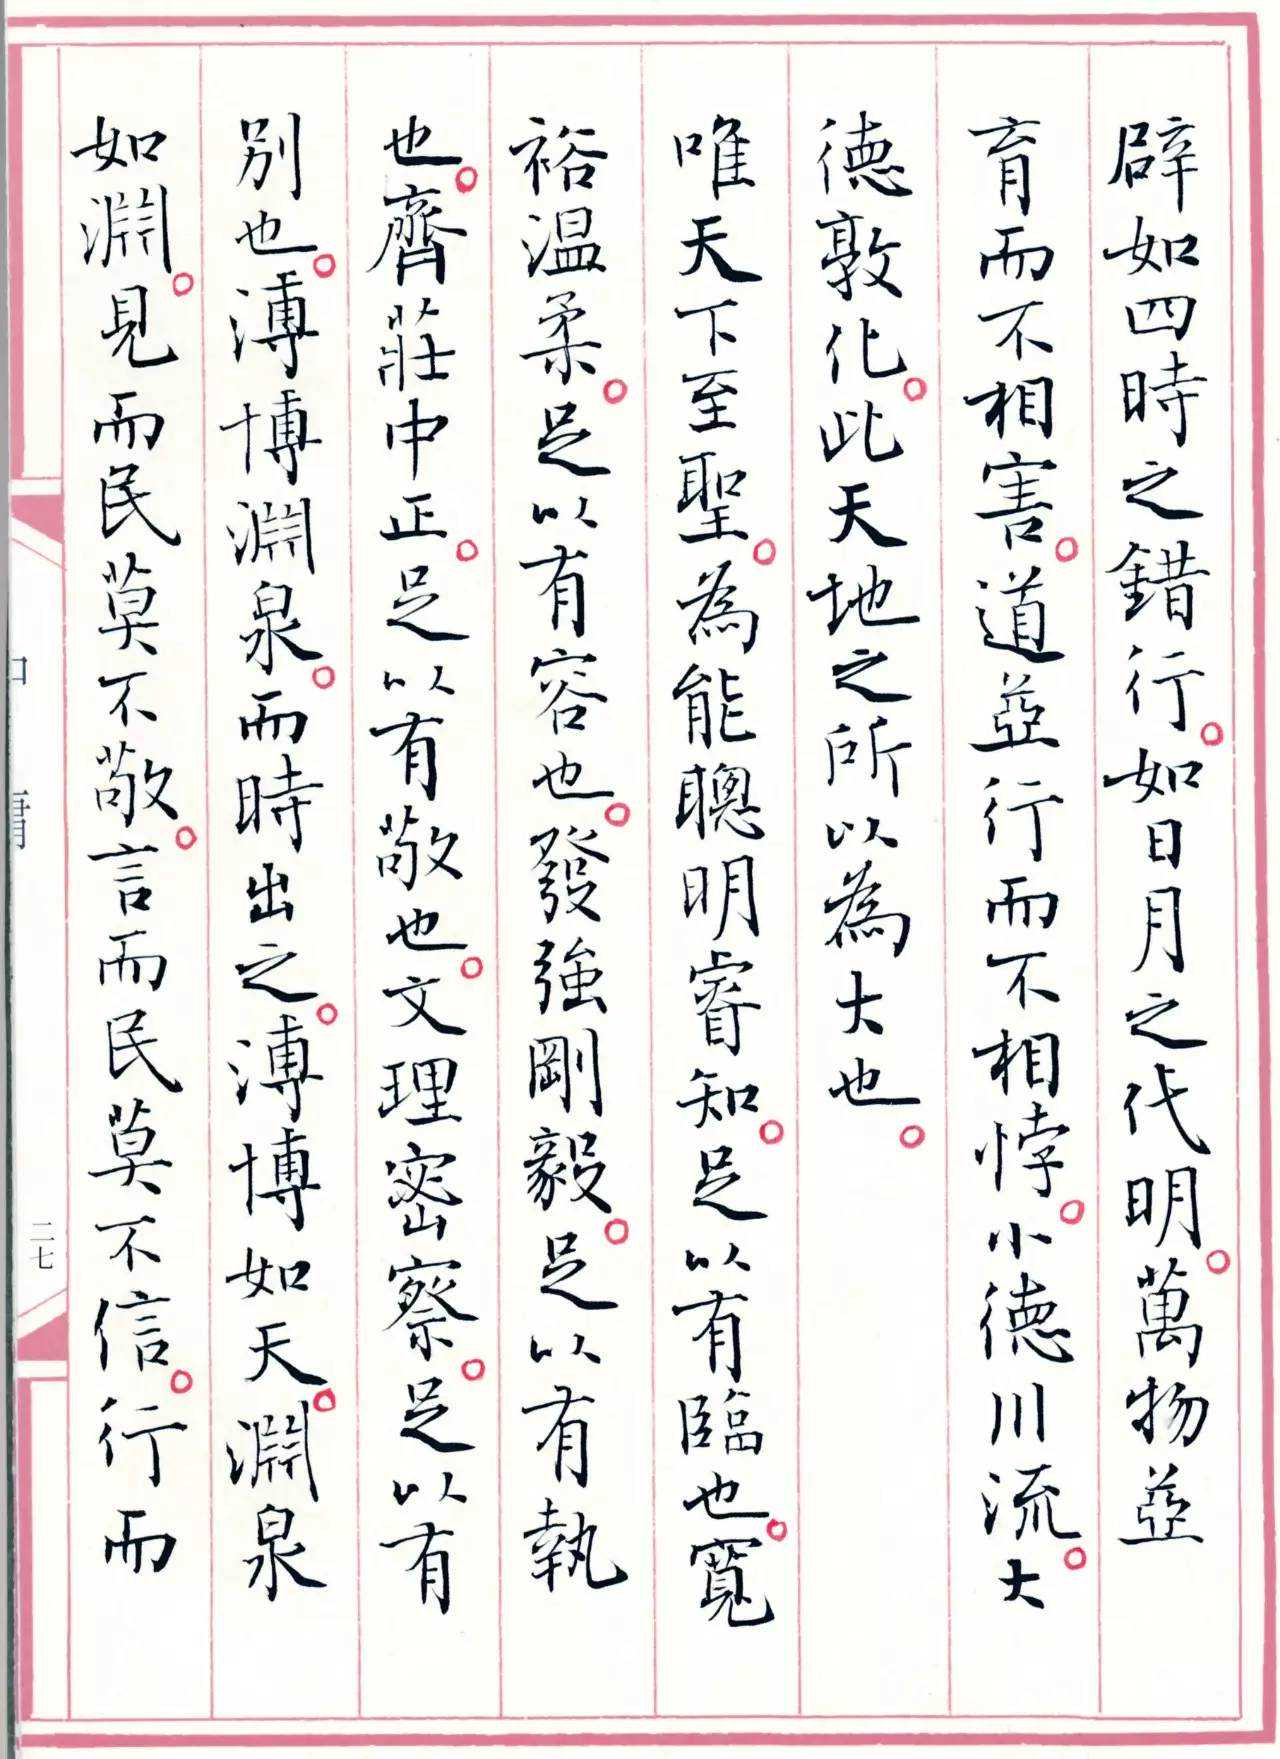 辟如四時之錯行。如日月之代明。萬物並
育而不相害。道並行而不相悖。小德川流。大
德敦化。此天地之所以為大也。
唯天下至聖。為能聰明睿知。足以有臨也。寬
裕温柔。足以有容也。發強剛毅。足以有執
也。齊莊中正。足以有敬也。文理密察。足以有
別也。溥博淵泉。而時出之。溥博如天。淵泉
如淵。見而民莫不敬。言而民莫不信。行而
庸
二七